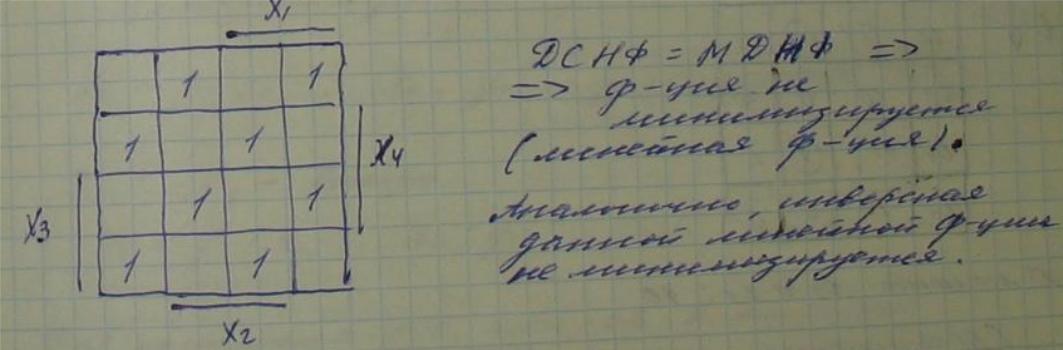 X1
1 1
1 1
X4
1 1
X3
1 1
X2
ДСНФ = МДНФ =>
=> ф-ция не
минимизируется
(линейная ф-ция).
Аналогично, инверсная
данной линейной ф-ции
не минимизируется.